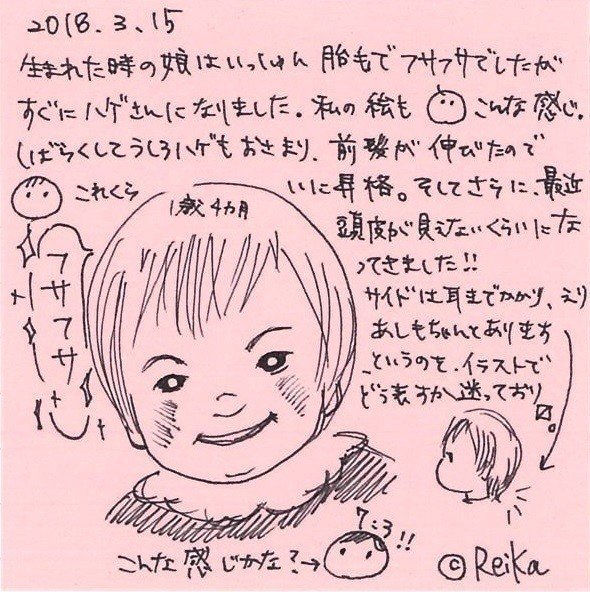 2018.3.15
生まれた時の娘はいっしゅん 胎毛で フサフサでしたが
すぐにハゲさんになりました。私の絵も こんな感じ。
しばらくしてうしろハゲもおさまり、前髪が伸びたので
これくらいに昇格。そしてさらに、最近
頭皮が見えないくらいにな
ってきました!!
サイドは耳までかかり、えり
あしもちゃんとあります
というのを、イラストで
どう表すか迷っており
〼。
1歳4カ月
フサフサ
7:3!!
こんな感じかな?→
©Reika